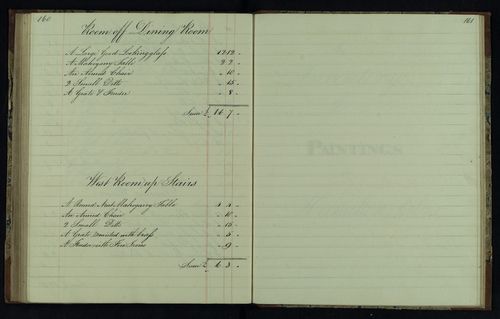 160
Room off Dining Room
A Large Good Lookingglass 12 12 -
A Mahogany Table 2 2 -
An Armed Chair - 10 -
2 Small Ditto - 15 -
A Grate & Fender - 8 -
Sum £ 16 7 -
West Room up Stairs
A Round Neat Mahogany Table 3 3 -
An Armed Chair - 10 -
2 Small Ditto - 16 -
A Grate mounted with brass - 5 -
A Fender with Fire Irons - 9 -
Sum £ 5 3 -
161
PAINTINGS